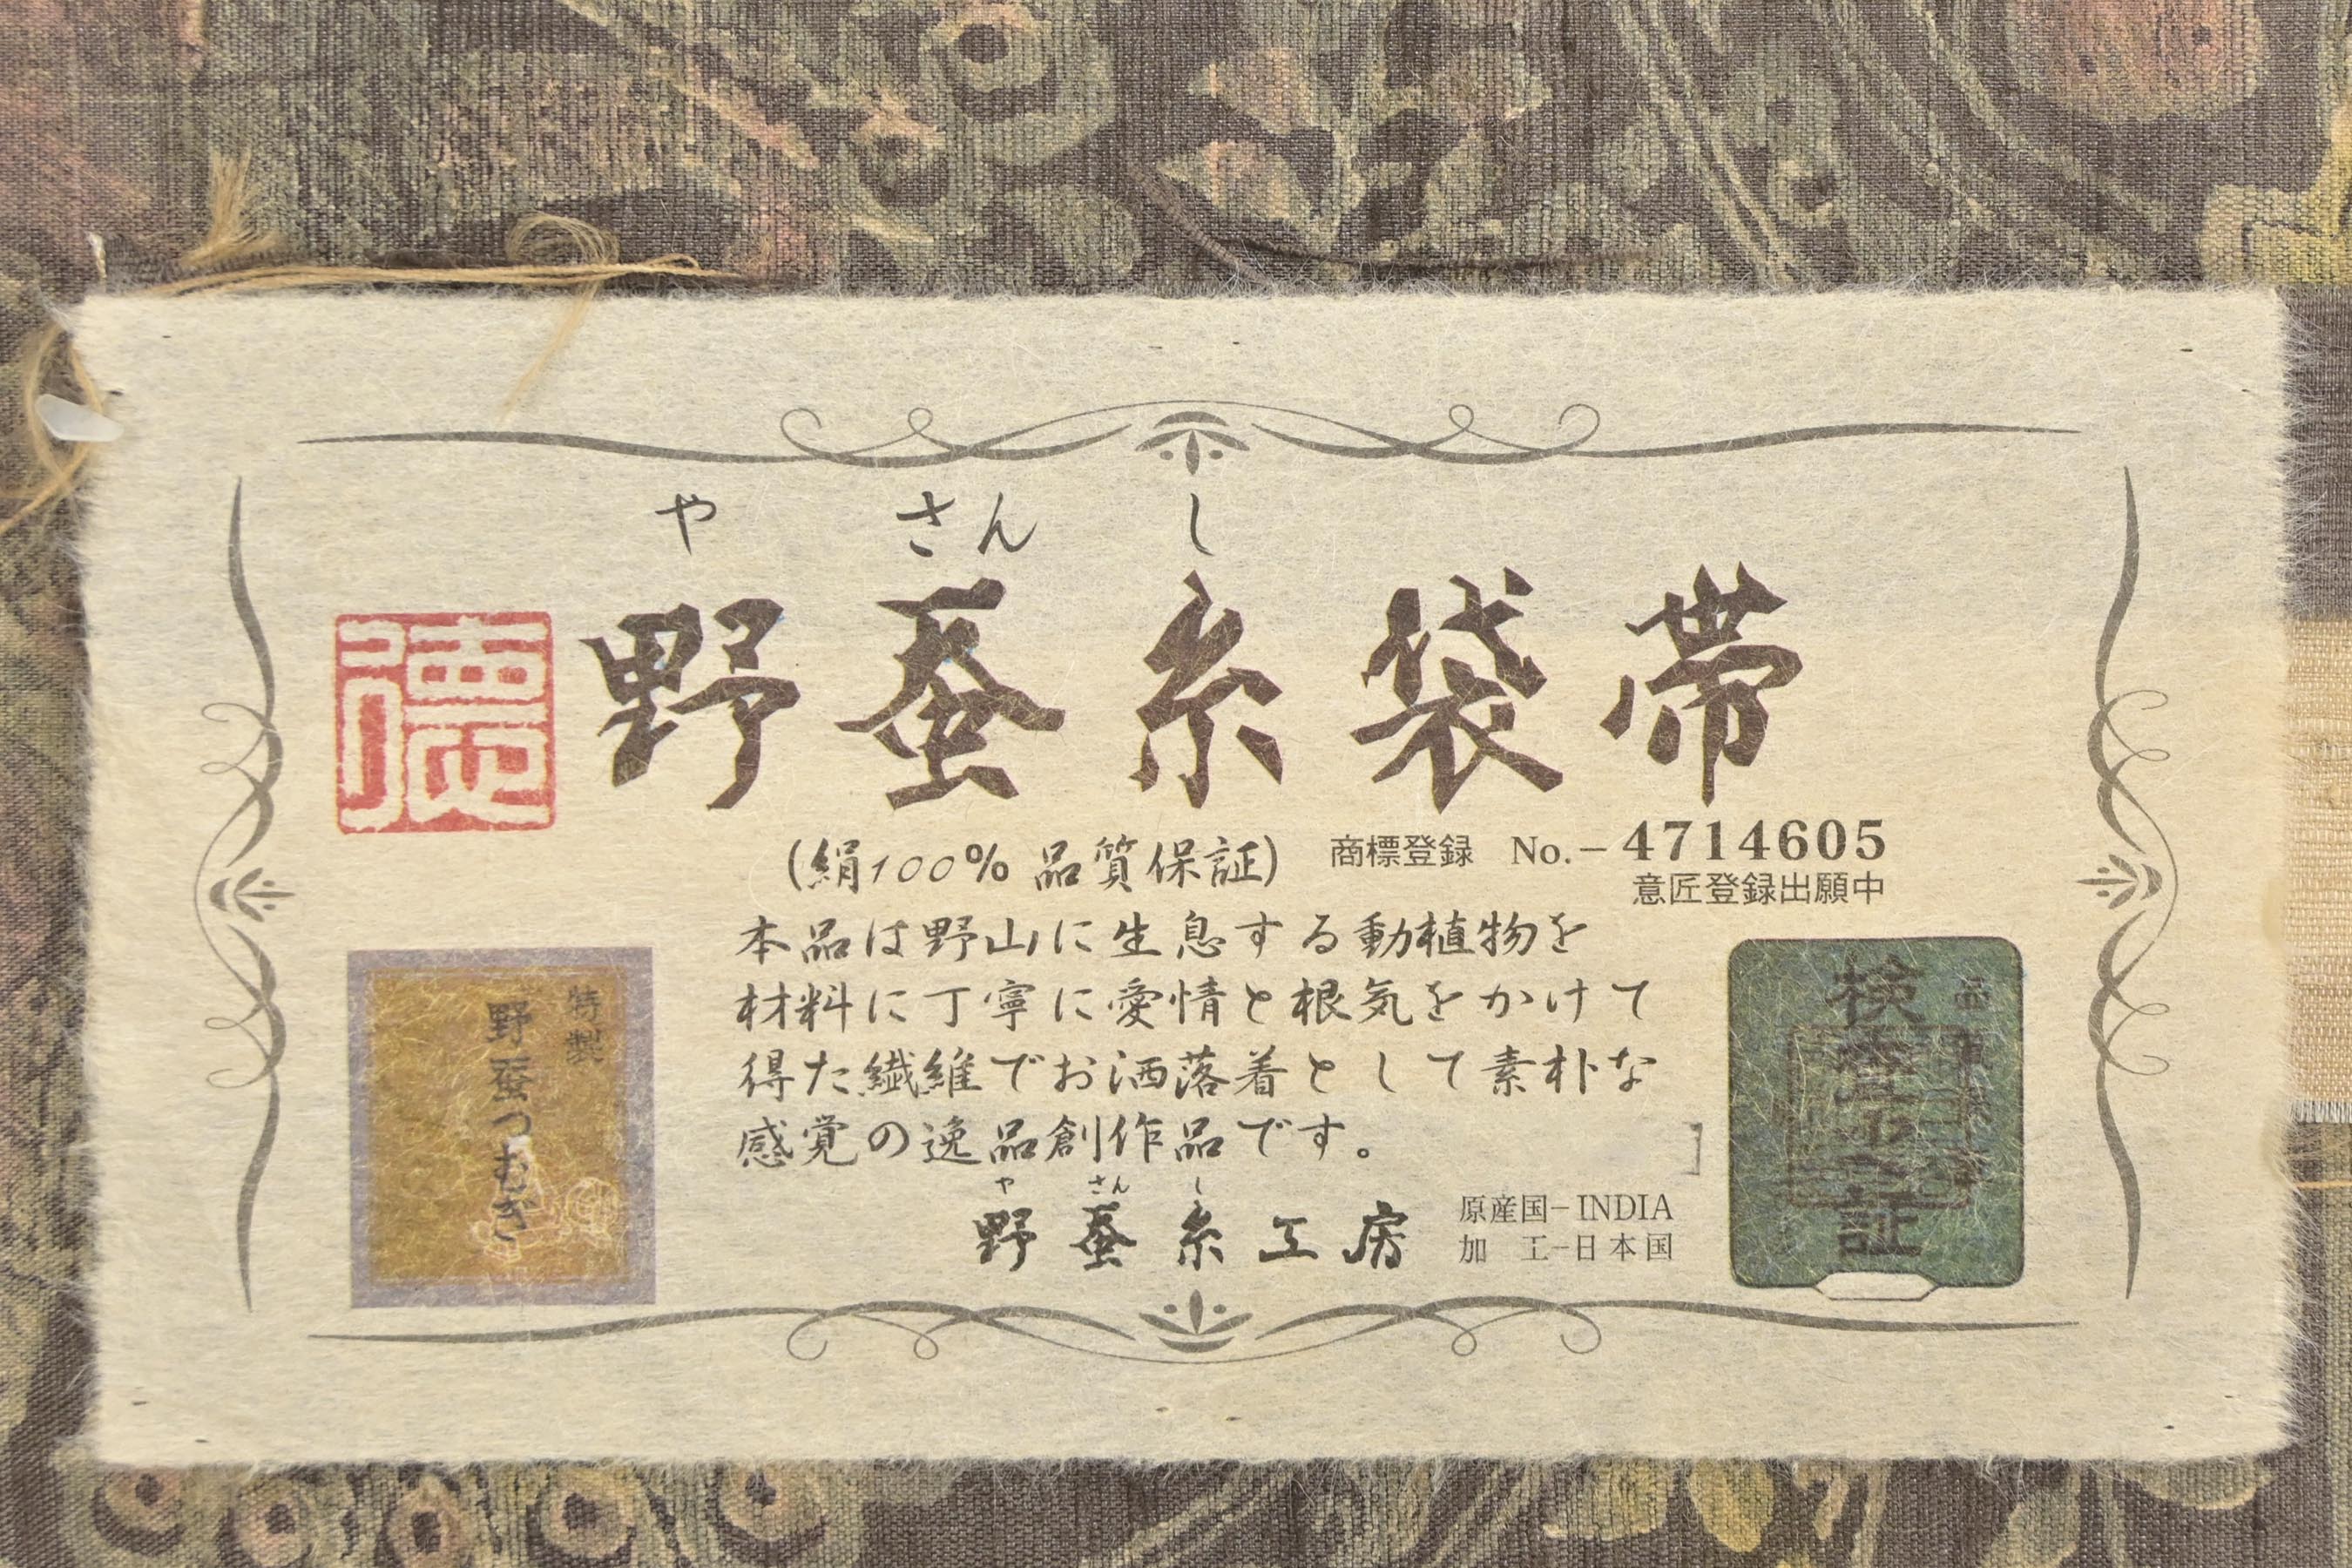 や さん し
德
野蚕糸袋帯
(絹100% 品質保証)
商標登録 No.－4714605
意匠登録出願中
本品は野山に生息する動植物を
材料に丁寧に愛情と根気をかけて
得た繊維でお洒落着として素朴な
感覚の逸品創作品です。
や さん し
野蚕糸工房
原産国－INDIA
加 工－日本国
特製
野蚕つむぎ
検査之証